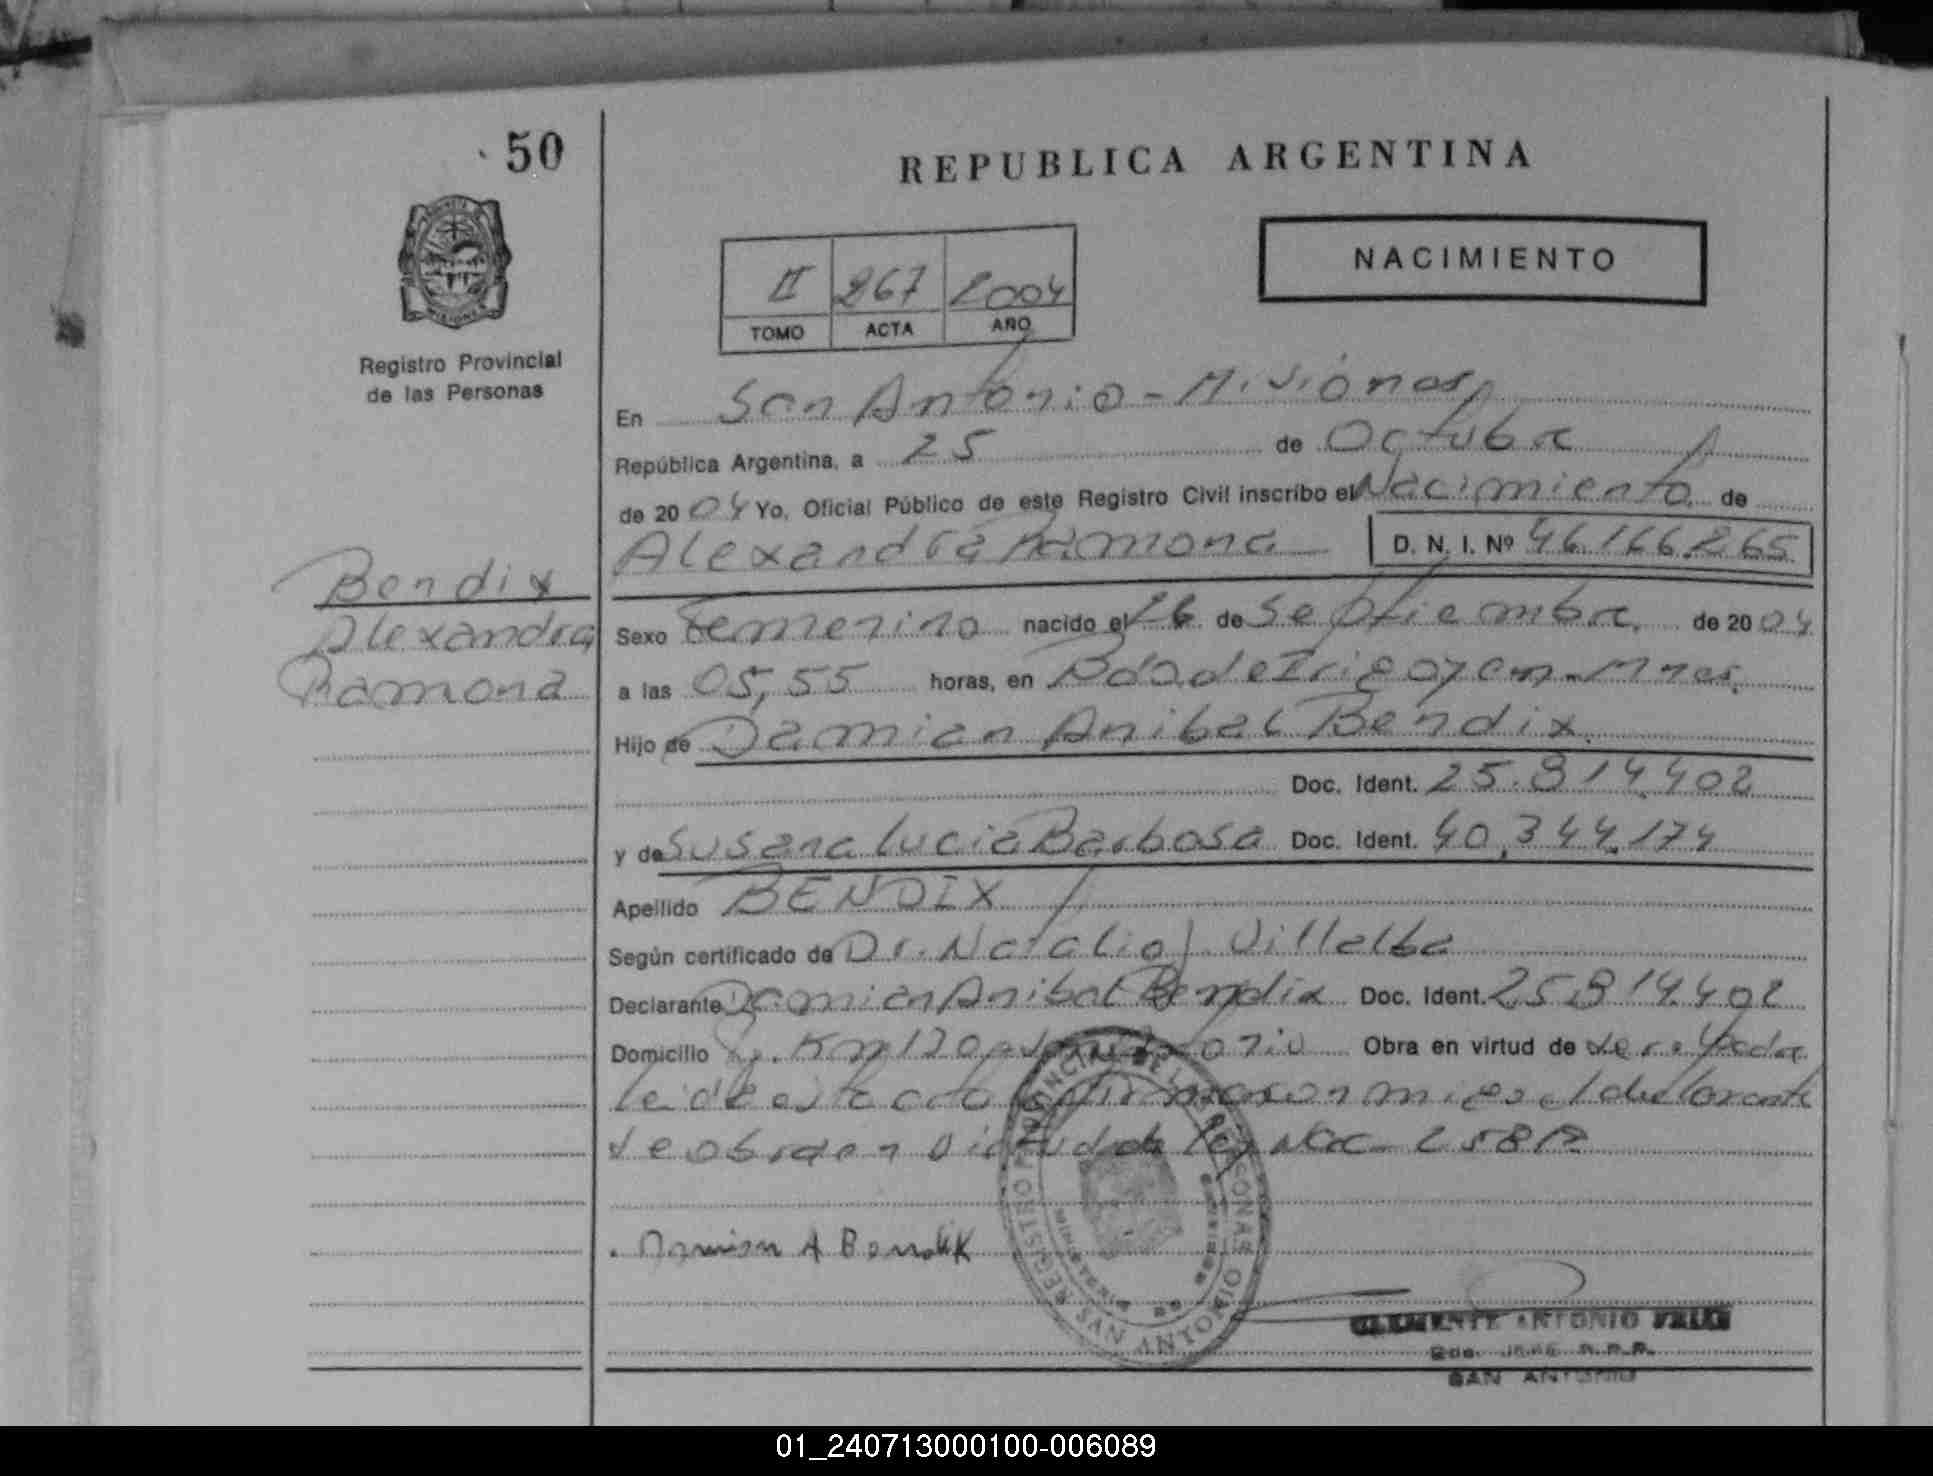 50
REPUBLICA ARGENTINA
NACIMIENTO
II 267 2004
TOMO ACTA AÑO
Registro Provincial
de las Personas
En San Antonio - Misiones
República Argentina, a 25 de Octubre
de 2004 Yo, Oficial Público de este Registro Civil inscribo el Nacimiento de
Alexandra Ramona D. N. I. Nº 46.166.265
Bendix
Alexandra
Ramona
Sexo Femenino nacido el 26 de Septiembre de 2004
a las 05,55 horas, en Bdo de Irigoyen - Mnes.
Hijo de Damian Anibal Bendix
Doc. Ident. 25.814.402
y de Susana Lucia Barbosa Doc. Ident. 40.344.174
Apellido BENDIX
Según certificado de Dr. Natalio J. Villalba
Declarante Damian Anibal Bendix Doc. Ident. 25.814.402
Domicilio Km 120 Obra en virtud de
Leida esta acta firma conmigo el declarante
Ley Nac 25812
Damian A Bendix
REGISTRO PROVINCIAL DE LAS PERSONAS
SAN ANTONIO
CLEMENTE ANTONIO
SAN ANTONIO
01_240713000100-006089